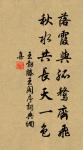 落霞與孤鶩齊飛
秋水共長天一色
王勃滕王閣序詞典網